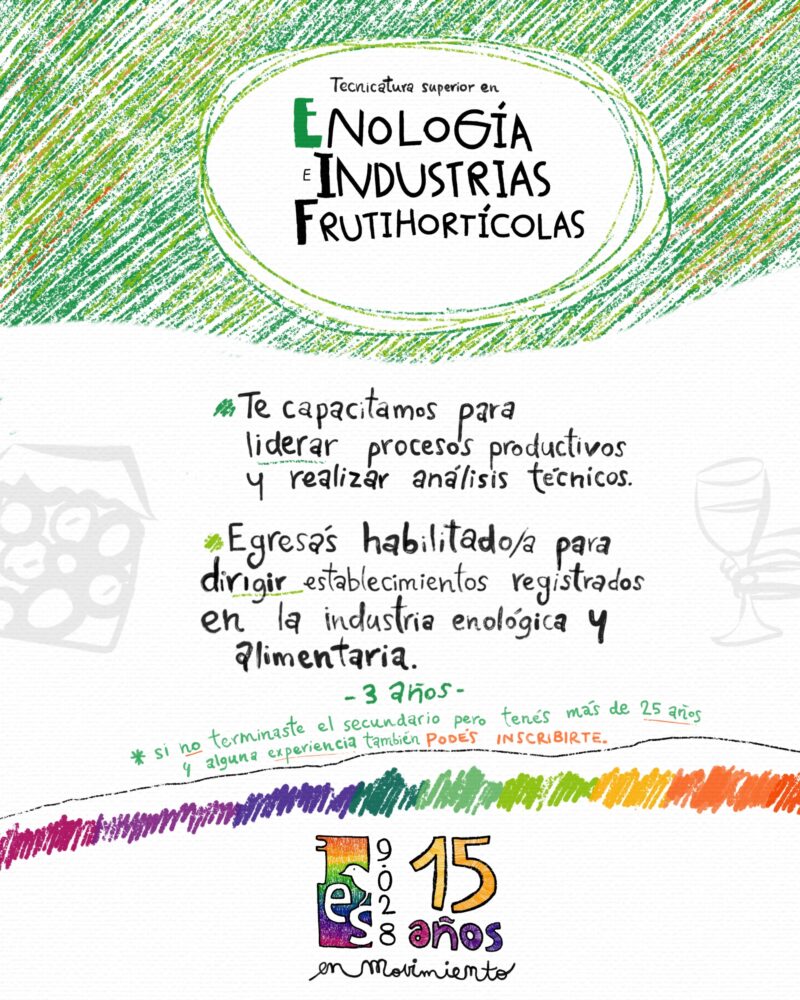 Tecnicatura superior en
ENOLOGÍA
E INDUSTRIAS
FRUTIHORTÍCOLAS
Te capacitamos para
liderar procesos productivos
y realizar análisis técnicos.
Egresás habilitado/a para
dirigir establecimientos registrados
en la industria enológica y
alimentaria.
- 3 años -
* si no terminaste el secundario pero tenés más de 25 años
y alguna experiencia también PODÉS INSCRIBIRTE.
ies 9.028
15
años
en movimiento